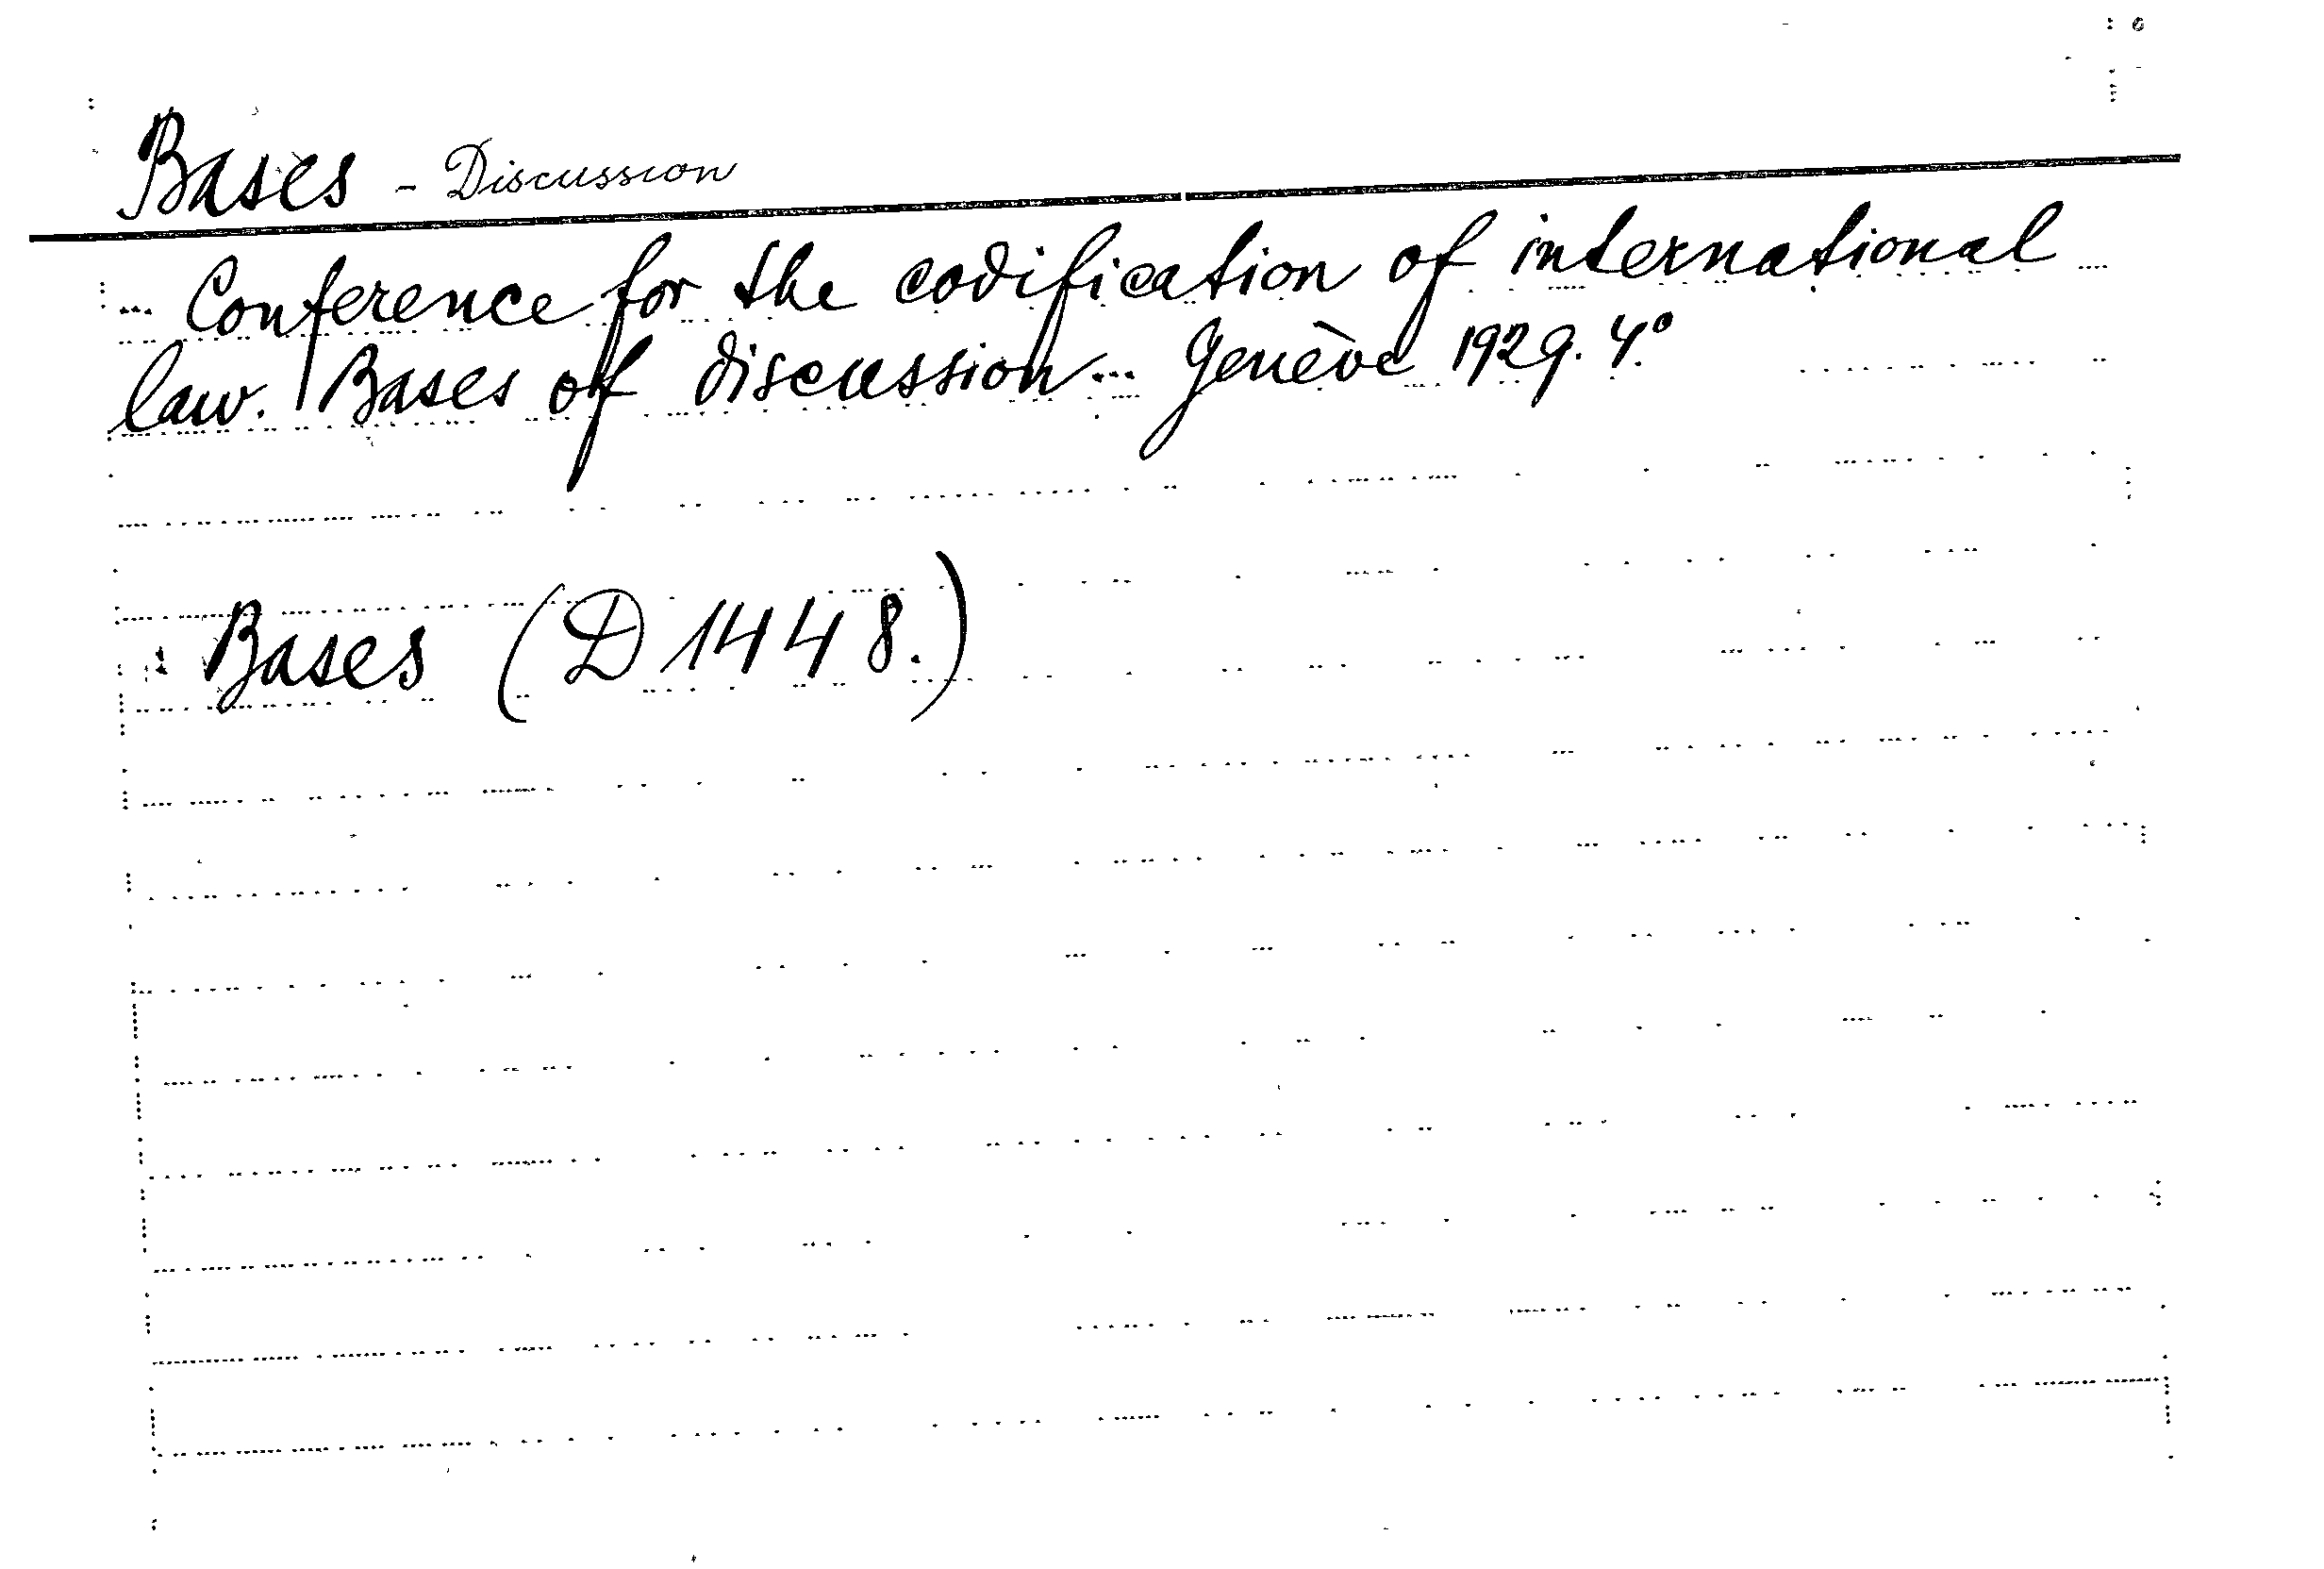 Bases - Discussion
Conference for the codification of international
law. Bases of discussion... Genève 1929. 4°
Bases (D 1448.)